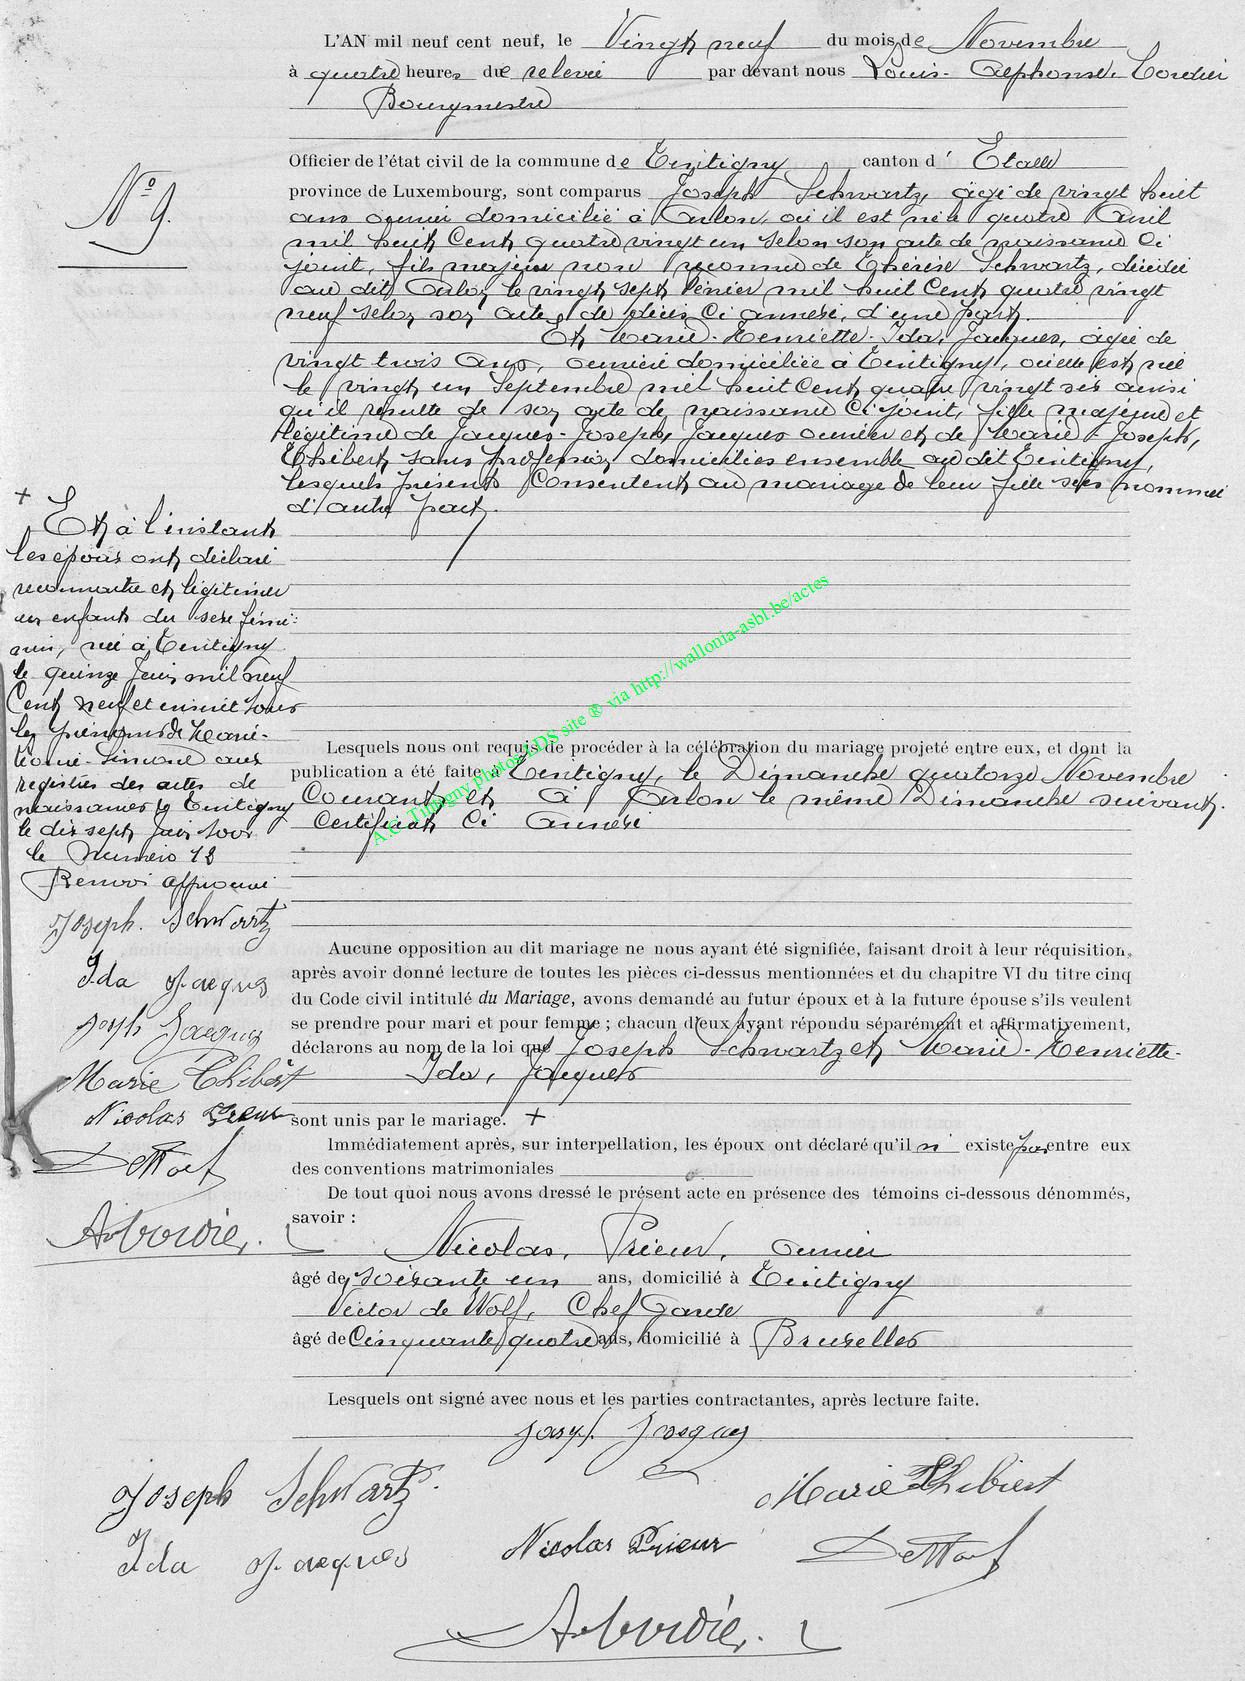 L'AN mil neuf cent neuf, le Vingt neuf du mois de Novembre
à quatre heures de relevée par devant nous Louis-Alphonse, Cordier
Bourgmestre
Officier de l'état civil de la commune de Tintigny canton d'Etalle
province de Luxembourg, sont comparus Joseph Schwartz, âgé de vingt huit
ans ouvrier domicilié à Arlon, où il est né le quatre Avril
mil huit Cent quatre vingt un selon son acte de naissance Ci
joint, fils majeur non reconnu de Thérèse Schwartz, décédée
au dit Arlon le vingt sept Février mil huit Cent quatre vingt
neuf selon son acte de décès Ci annexé, d'une part.
Et Marie-Henriette-Ida, Jacques, âgée de
vingt trois Ans, ouvrière domiciliée à Tintigny, où elle est née
le vingt un Septembre mil huit Cent quatre vingt six ainsi
qu'il résulte de son acte de naissance Ci joint, fille majeure et
légitime de Jacques-Joseph, Jacques ouvrier et de Marie-Joseph,
Thibert sans profession domiciliés ensemble au dit Tintigny,
lesquels présents Consentent au mariage de leur fille sus nommée
d'autre part.
N° 9.
+
Et à l'instant
les époux ont déclaré
reconnaître et légitimer
un enfant du sexe fémi-
nin, née à Tintigny
le quinze Juin mil neuf
Cent neuf et inscrit sous
les prénoms de Marie-
Simone aux
registres des actes de
naissances de Tintigny
le dix sept Juin sous
le Numéro 12
Renvoi approuvé
Joseph. Schwartz
Ida Jacques
Joseph Jacques
Marie Thibert
Nicolas Prieur
DeWolf
A. Cordier.
A.C. Tintigny photos LDS site ® via http://wallonia-asbl.be/actes
Lesquels nous ont requis de procéder à la célébration du mariage projeté entre eux, et dont la
publication a été faite à Tintigny, le Dimanche quatorze Novembre
Courant et à Arlon le même Dimanche suivant.
Certificat Ci Annexé
Aucune opposition au dit mariage ne nous ayant été signifiée, faisant droit à leur réquisition,
après avoir donné lecture de toutes les pièces ci-dessus mentionnées et du chapitre VI du titre cinq
du Code civil intitulé du Mariage, avons demandé au futur époux et à la future épouse s'ils veulent
se prendre pour mari et pour femme ; chacun d'eux ayant répondu séparément et affirmativement,
déclarons au nom de la loi que Joseph Schwartz et Marie-Henriette-
Ida, Jacques
sont unis par le mariage. +
Immédiatement après, sur interpellation, les époux ont déclaré qu'il n' existe pas entre eux
des conventions matrimoniales
De tout quoi nous avons dressé le présent acte en présence des témoins ci-dessous dénommés,
savoir :
Nicolas, Prieur, ouvrier
âgé de soixante un ans, domicilié à Tintigny
Victor de Wolf, Chef Garde
âgé de Cinquante quatre ans, domicilié à Bruxelles
Lesquels ont signé avec nous et les parties contractantes, après lecture faite.
Joseph Jacques
Joseph Schwartz.
Marie Thibert
Ida Jacques
Nicolas Prieur
DeWolf
A. Cordier.